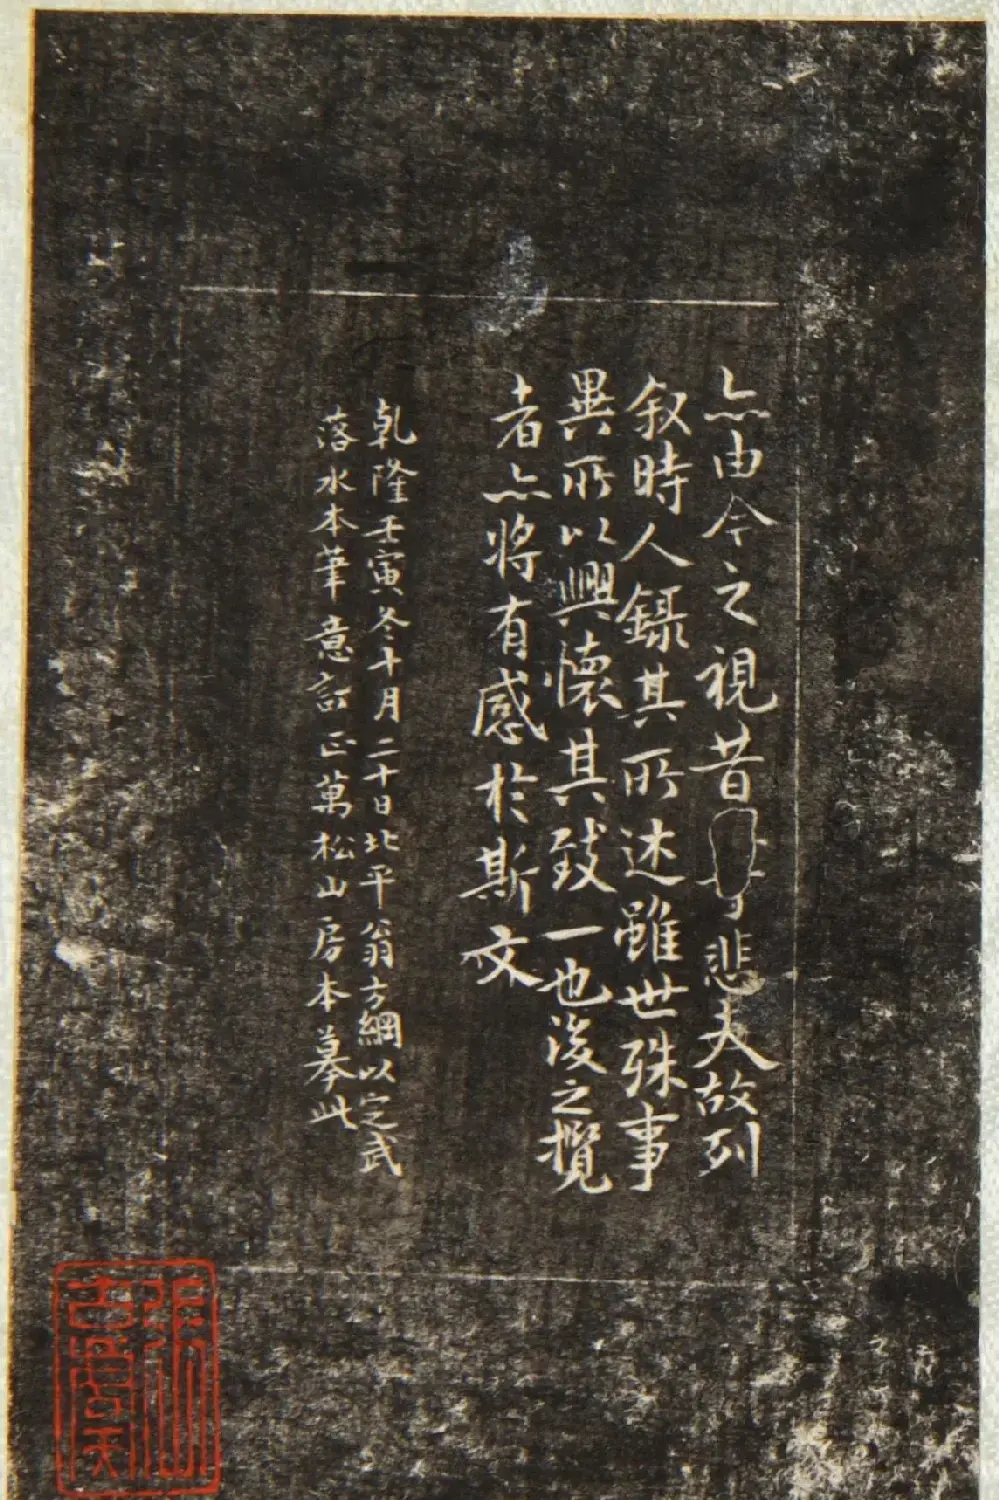 亦由今之視昔悲夫故列
叙時人錄其所述雖世殊事
異所以興懷其致一也後之攬
者亦將有感於斯文
乾隆壬寅冬十月二十日北平翁方綱以定武
落水本筆意訂正萬松山房本摹此